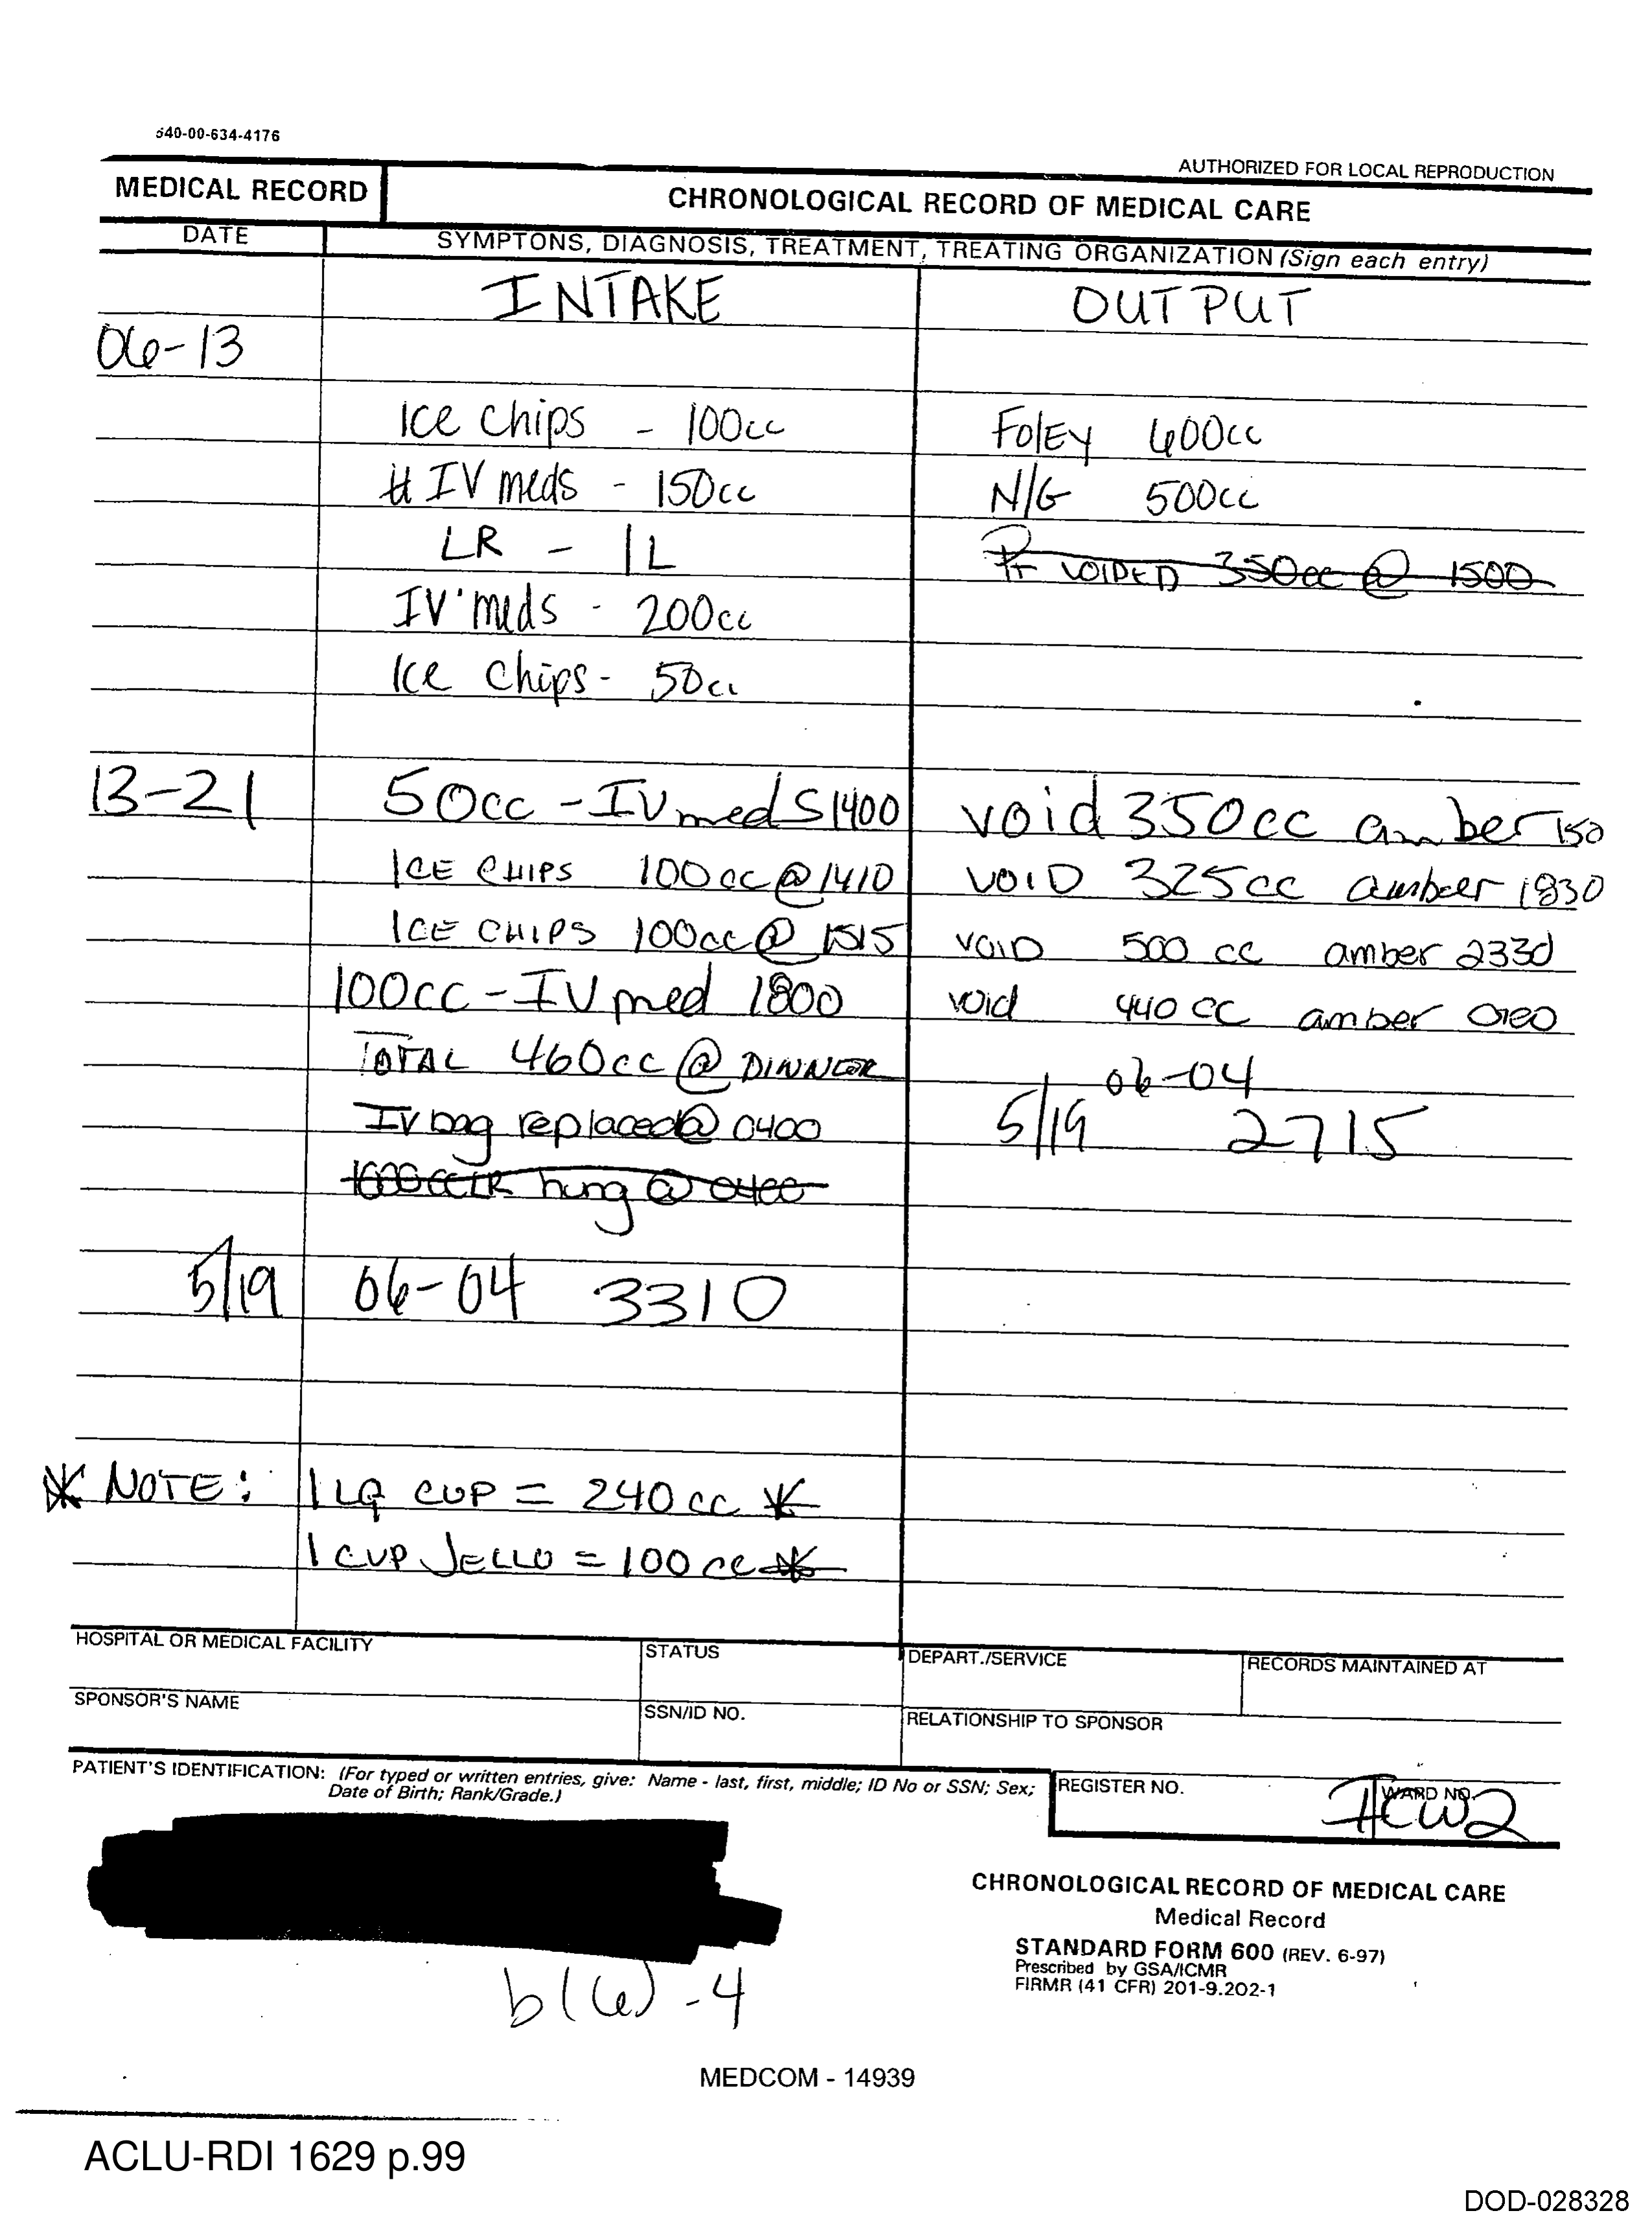 540-00-634-4176
AUTHORIZED FOR LOCAL REPRODUCTION
MEDICAL RECORD
CHRONOLOGICAL RECORD OF MEDICAL CARE
DATE
SYMPTONS, DIAGNOSIS, TREATMENT, TREATING ORGANIZATION (Sign each entry)
INTAKE OUTPUT
06-13
Ice Chips - 100cc Foley 600cc
IV meds - 150cc N/G 500cc
LR - 1L Pt VOIDED 350cc @ 1500
IV meds - 200cc
Ice Chips - 50cc
13-21 50cc - IV meds 1400 void 350cc amber 150
ICE CHIPS 100cc @ 1410 VOID 325cc amber 1830
ICE CHIPS 100cc @ 1515 VOID 500 cc amber 2330
100cc - IV med 1800 void 440 cc amber
TOTAL 460cc @ DINNER 06-04
IV bag replaced @ 0400 5/19 2715
1000 cc LR hung @ 0400
5/19 06-04 3310
* NOTE: 1 LG CUP = 240cc *
1 CUP JELLO = 100cc *
HOSPITAL OR MEDICAL FACILITY
STATUS
DEPART./SERVICE
RECORDS MAINTAINED AT
SPONSOR'S NAME
SSN/ID NO.
RELATIONSHIP TO SPONSOR
PATIENT'S IDENTIFICATION: (For typed or written entries, give: Name - last, first, middle; ID No or SSN; Sex;
Date of Birth; Rank/Grade.)
REGISTER NO.
WARD NO.
ICW2
CHRONOLOGICAL RECORD OF MEDICAL CARE
Medical Record
STANDARD FORM 600 (REV. 6-97)
Prescribed by GSA/ICMR
FIRMR (41 CFR) 201-9.202-1
b(6)-4
MEDCOM - 14939
ACLU-RDI 1629 p.99
DOD-028328